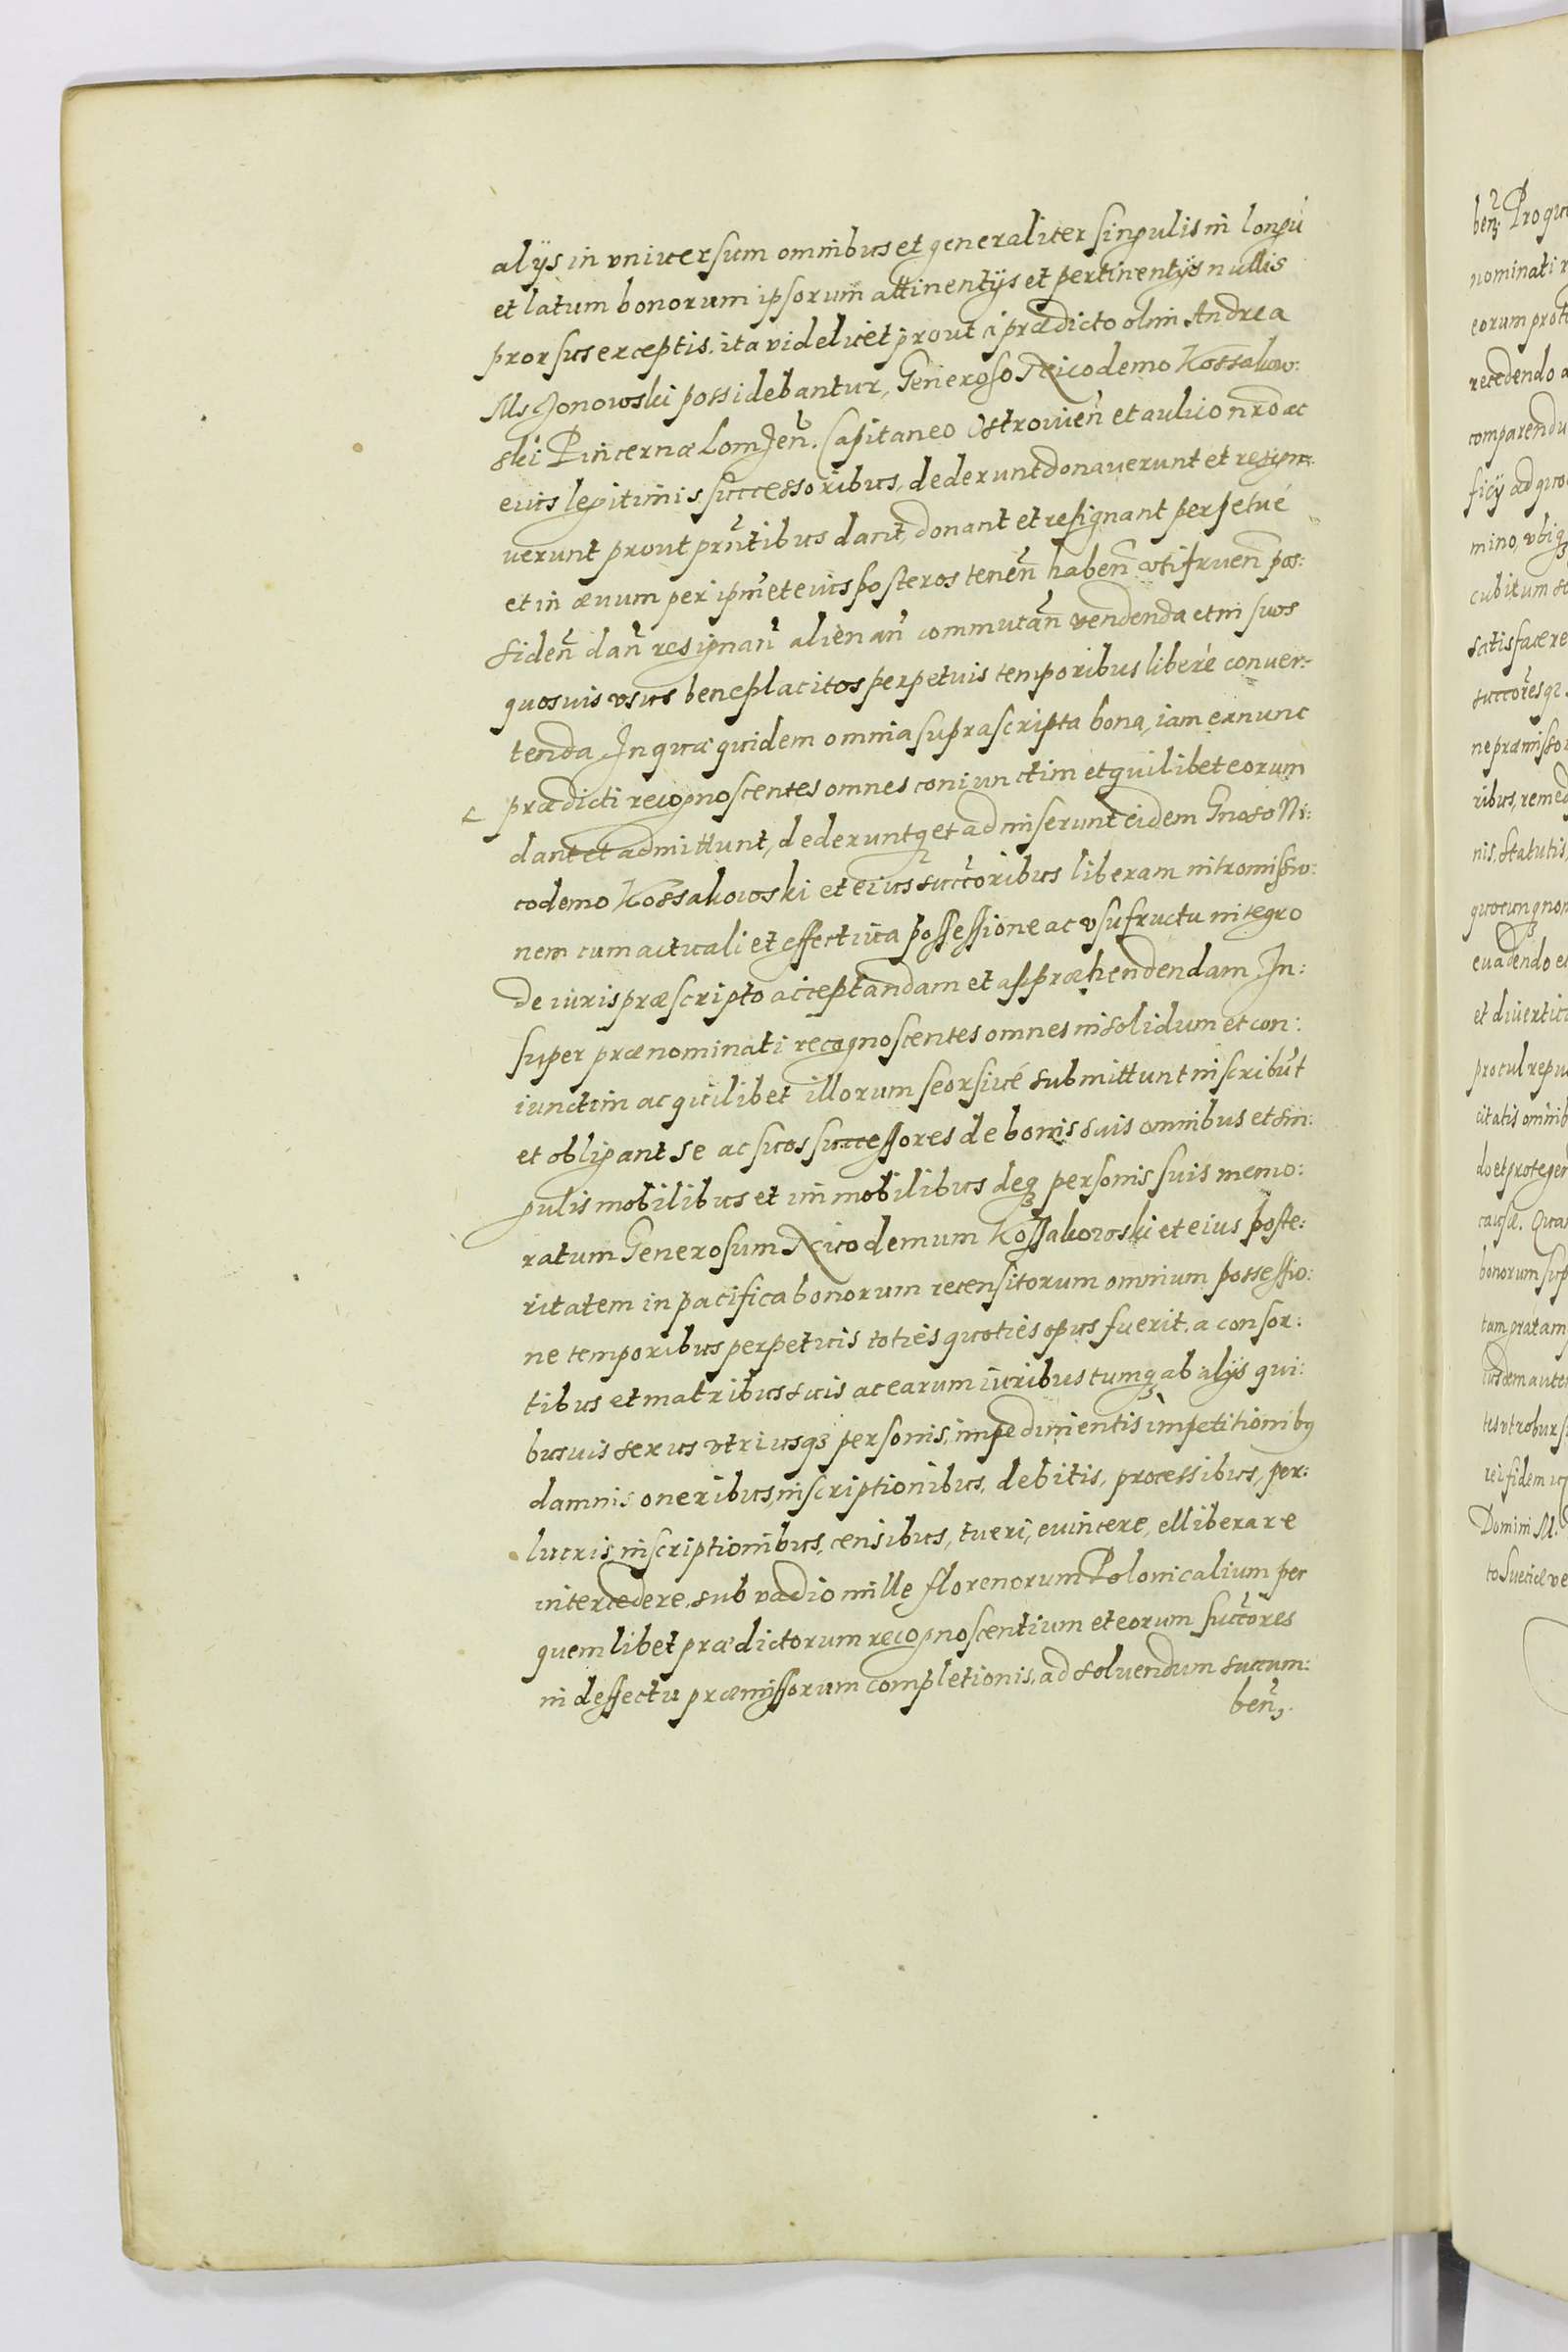 alijs in vniuersum omnibus et generaliter singulis in longũ
et latum bonorum ipsorum attinentijs et pertinentijs nullis
prorsus exceptis, ita videlicet prout à prædicto olim Andrea
Msjonowski possidebantur, Generoso Nicodemo Kossakow:
ski Pincernæ Lomzeñ. Capitaneo Ostrowieñ et aulico nrõ ac
eius legitimis successoribus, dederunt donauerunt et resigna
uerunt prout prñtibus dant, donant et resignant perpetué
et in æuum per ipm̃ et eius posteros teneñ habeñ vtifrueñ pos:
sideñ dañ resignañ alienañ commutañ vendenda et in suos
quosuis vsus beneplacitos perpetuis temporibus liberè conuer:
tenda. In quæ quidem omnia suprascripta bona, iam exnunc
prædicti recognoscentes omnes coniunctim et quilibet eorum
dant et admittunt, dederuntqꝫ et admiserunt eidem Gnoso Ni:
codemo Kossakowski et eius succõribus liberam intromissio:
nem cum actuali et effectiua possessione ac vsufructu integro
de iuris præscripto acceptandam et appræhendendam. In:
super prænominati recognoscentes omnes in solidum et con:
iunctim ac quilibet illorum seorsiué submittunt inscribũt
et obligant se ac suos successores de bonis suis omnibus et sin:
gulis mobilibus et immobilibus deqꝫ personis suis memo:
ratum Generosum Nicodemum Kossakowski et eius poste:
ritatem in pacifica bonorum recensitorum omnium possessio:
ne temporibus perpetuis toties quoties opus fuerit, a consor:
tibus et matribus suis ac earum iuribus tumqꝫ ab alijs qui:
busuis sexus vtriusqꝫ personis, impedimentis impetitionibꝫ
damnis oneribus, inscriptionibus, debitis, processibus, per:
lucris inscriptionibus, censibus, tueri, euincere, elliberare
intercedere, sub vadio mille florenorum Polonicalium per
quemlibet prædictorum recognoscentium et eorum succõres
in deffectu præmissorum completionis, ad soluendum succum:
beñ,
beñ; Pro qu
nominati r
eorum prot
recedendo a
comparendu
ficij ad quo
mino, vbiqꝫ
cubitum
satisfacere
succõresqꝫ
ne præmisso
ribus, remed
nis, statutis,
quocunqꝫ nom
euadendo e
et diuertic
procul repu
citatis omnib
do et protegen
causæ. Qua
bonorum sup
tam
iusdem aute
tus vt robur
rei fidem
Domini M.
to Sueticæ ve